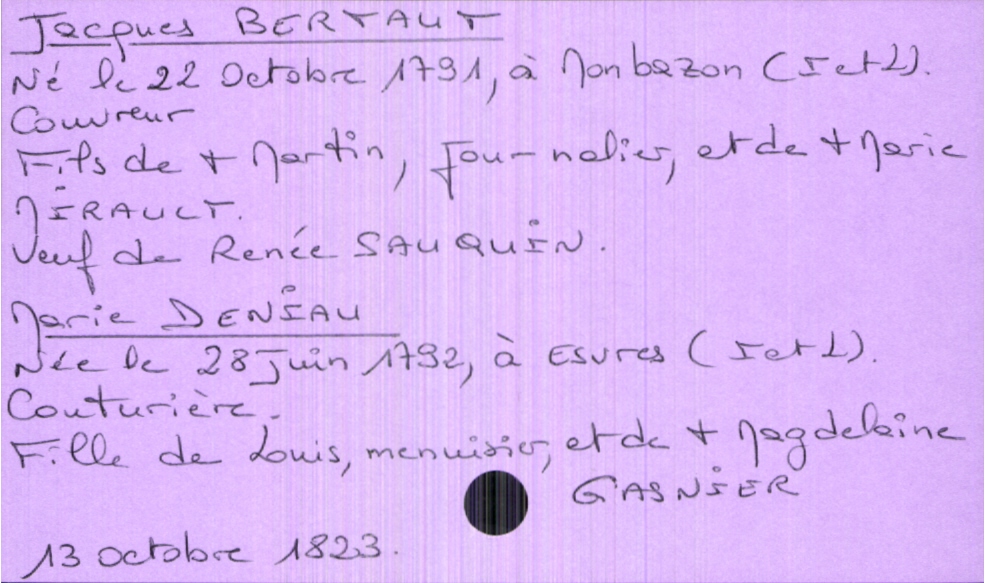 Jacques BERTAUT
Né le 22 Octobre 1791, à Monbazon (I et L).
Couvreur
Fils de + Martin, Journalier, et de + Marie
MIRAULT.
Veuf de Renée SAUQUIN.
Marie DENIAU
Née le 28 Juin 1792, à Esvres (I et L).
Couturière.
Fille de Louis, menuisier, et de + Magdelaine
GASNIER
13 octobre 1823.